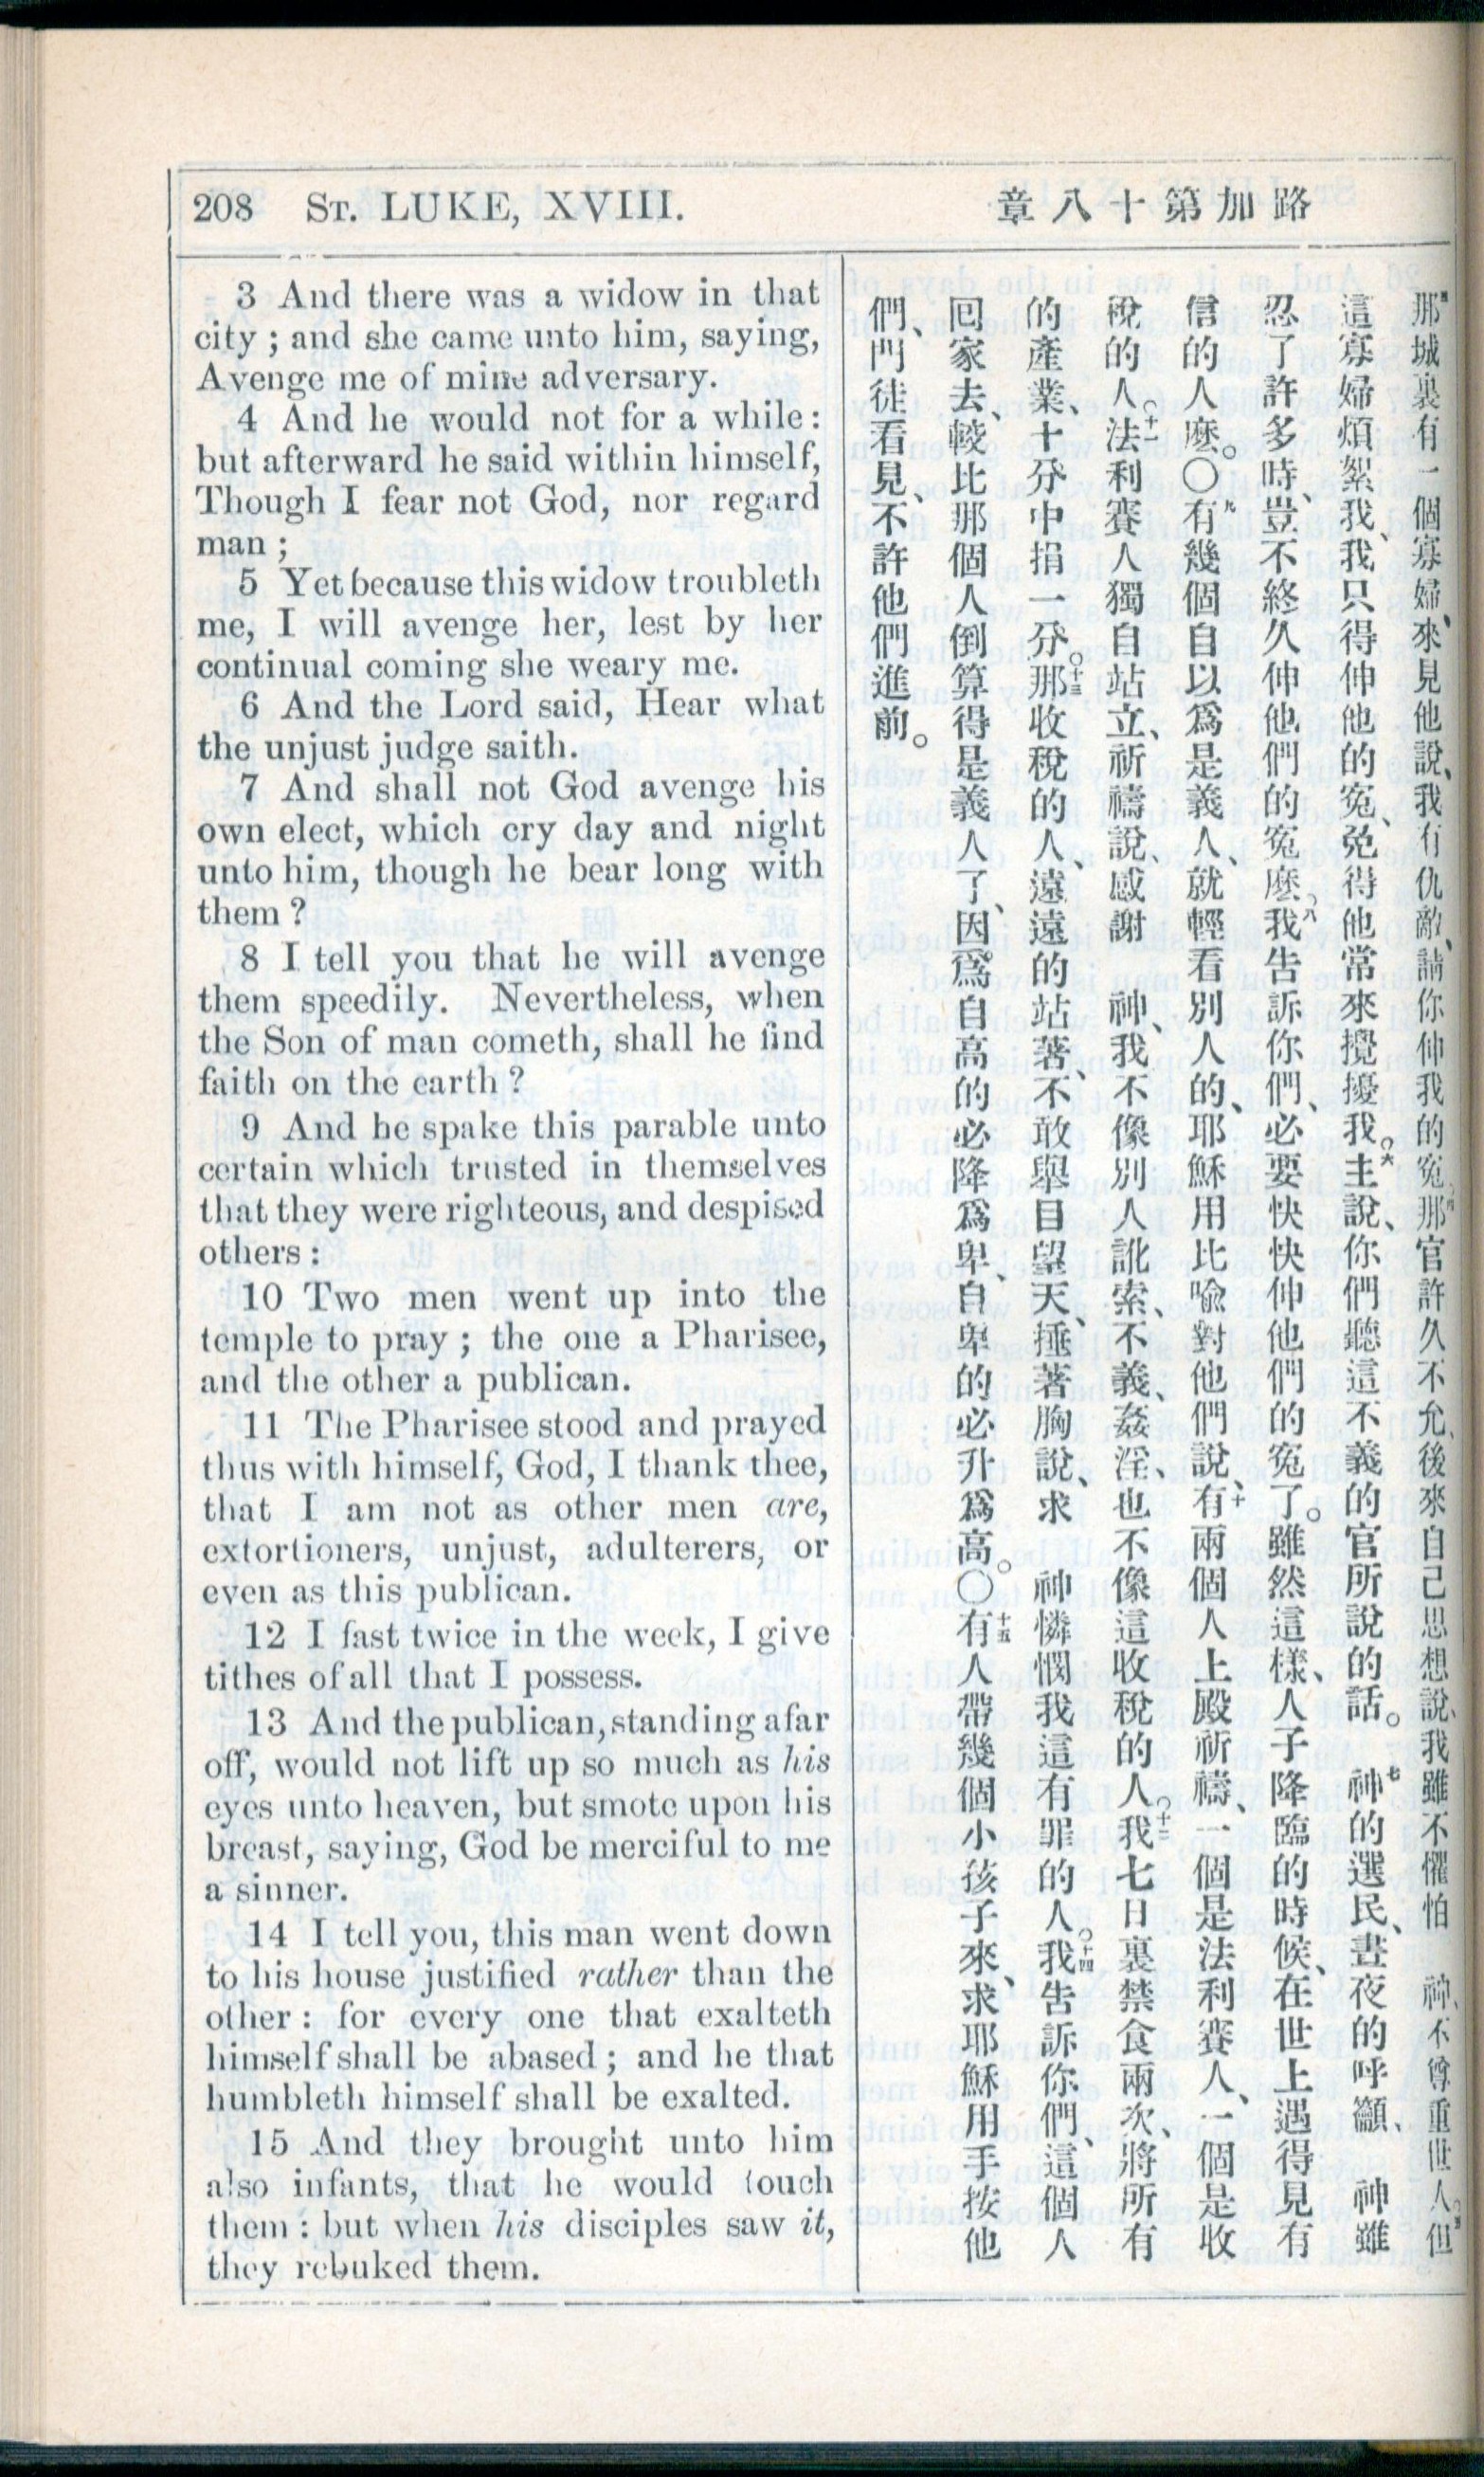 208 ST. LUKE, XVIII.
路加第十八章
3 And there was a widow in that
city ; and she came unto him, saying,
Avenge me of mine adversary.
4 And he would not for a while :
but afterward he said within himself,
Though I fear not God, nor regard
man ;
5 Yet because this widow troubleth
me, I will avenge her, lest by her
continual coming she weary me.
6 And the Lord said, Hear what
the unjust judge saith.
7 And shall not God avenge his
own elect, which cry day and night
unto him, though he bear long with
them ?
8 I tell you that he will avenge
them speedily. Nevertheless, when
the Son of man cometh, shall he find
faith on the earth ?
9 And he spake this parable unto
certain which trusted in themselves
that they were righteous, and despised
others :
10 Two men went up into the
temple to pray ; the one a Pharisee,
and the other a publican.
11 The Pharisee stood and prayed
thus with himself, God, I thank thee,
that I am not as other men are,
extortioners, unjust, adulterers, or
even as this publican.
12 I fast twice in the week, I give
tithes of all that I possess.
13 And the publican, standing afar
off, would not lift up so much as his
eyes unto heaven, but smote upon his
breast, saying, God be merciful to me
a sinner.
14 I tell you, this man went down
to his house justified rather than the
other : for every one that exalteth
himself shall be abased ; and he that
humbleth himself shall be exalted.
15 And they brought unto him
also infants, that he would touch
them : but when his disciples saw it,
they rebuked them.
那城裏有一個寡婦、來見他說、我有仇敵、請你伸我的冤。四那官許久不允、後來自己思想說、我雖不懼怕 神、不尊重世人、五但
這寡婦煩絮我、我只得伸他的冤、免得他常來攪擾我。六主說、你們聽這不義的官所說的話。七 神的選民、晝夜的呼籲、 神雖
忍了許多時、豈不終久伸他們的冤麽。八我告訴你們、必要快快伸他們的冤了。雖然這樣、人子降臨的時候、在世上遇得見有
信的人麽。〇九有幾個自以爲是義人、就輕看別人的、耶穌用比喩對他們說、十有兩個人上殿祈禱、一個是法利賽人、一個是收
稅的人。十一法利賽人獨自站立、祈禱說、感謝 神、我不像別人訛索、不義、姦淫、也不像這收稅的人。十二我七日裏禁食兩次、將所有
的產業、十分中捐一分。十三那收稅的人、遠遠的站著、不敢舉目望天、捶著胸說、求 神憐憫我這有罪的人。十四我告訴你們、這個人
回家去、較比那個人倒算得是義人了、因爲自高的必降爲卑、自卑的必升爲高。〇十五有人帶幾個小孩子來、求耶穌用手按他
們、門徒看見、不許他們進前。